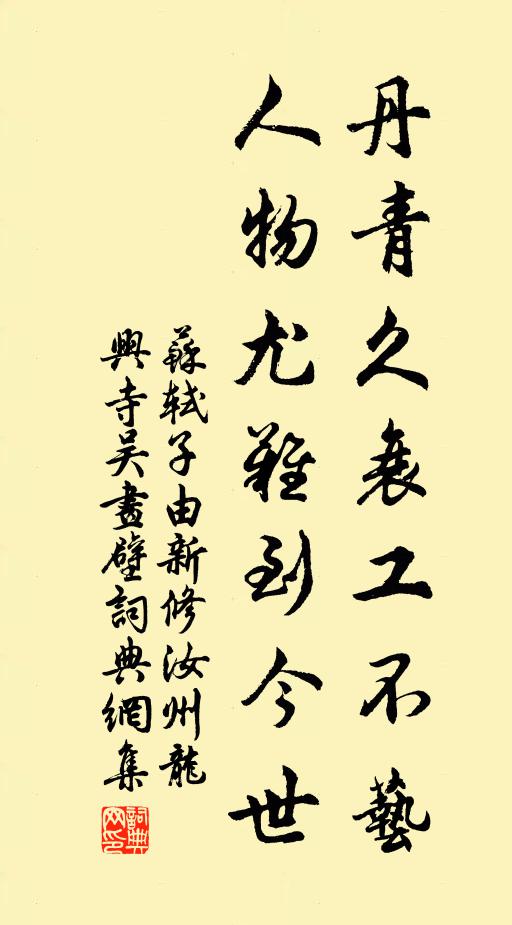 丹青久衰工不藝
人物尤難到今世
蘇軾子由新修汝州龍
興寺吳畫壁詞典網集
詞典
网印